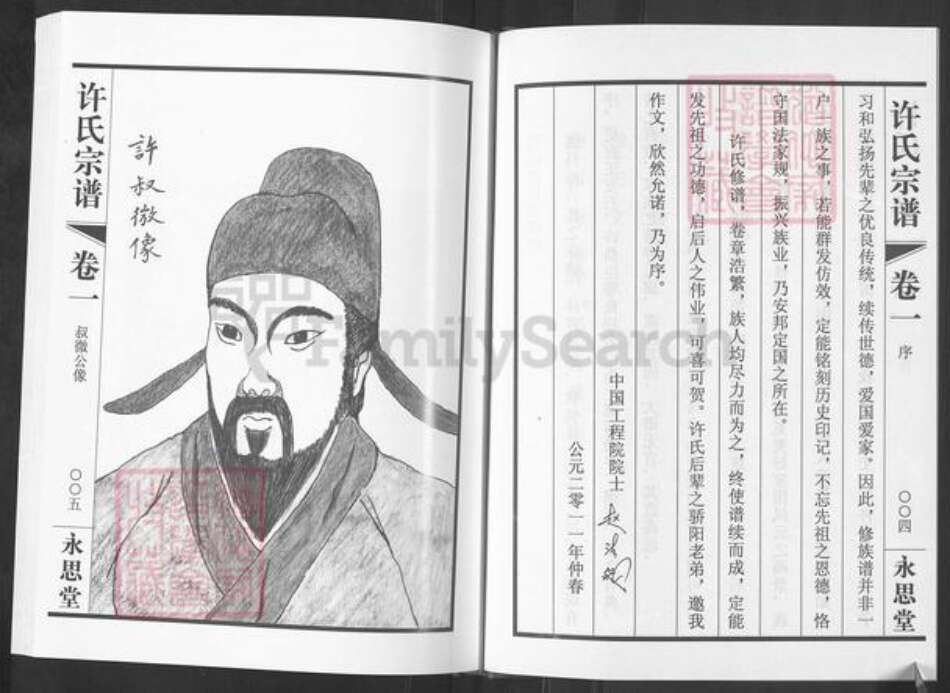 许氏宗谱
卷一
序
〇〇四
永思堂
习和弘扬先辈之优良传统，续传世德，爱国爱家。因此，修族谱并非一
户一族之事，若能群发仿效，定能铭刻历史印记，不忘先祖之恩德，恪
守国法家规，振兴族业，乃安邦定国之所在。
许氏修谱，卷章浩繁，族人均尽力而为之，终使谱续而成，定能
发先祖之功德，启后人之伟业，可喜可贺。许氏后辈之骄阳老弟，邀我
作文，欣然允诺，乃为序。
中国工程院院士
公元二零一一年仲春
许氏宗谱
卷一
叔微公像
〇〇五
永思堂
許叔微像
FamilySearch